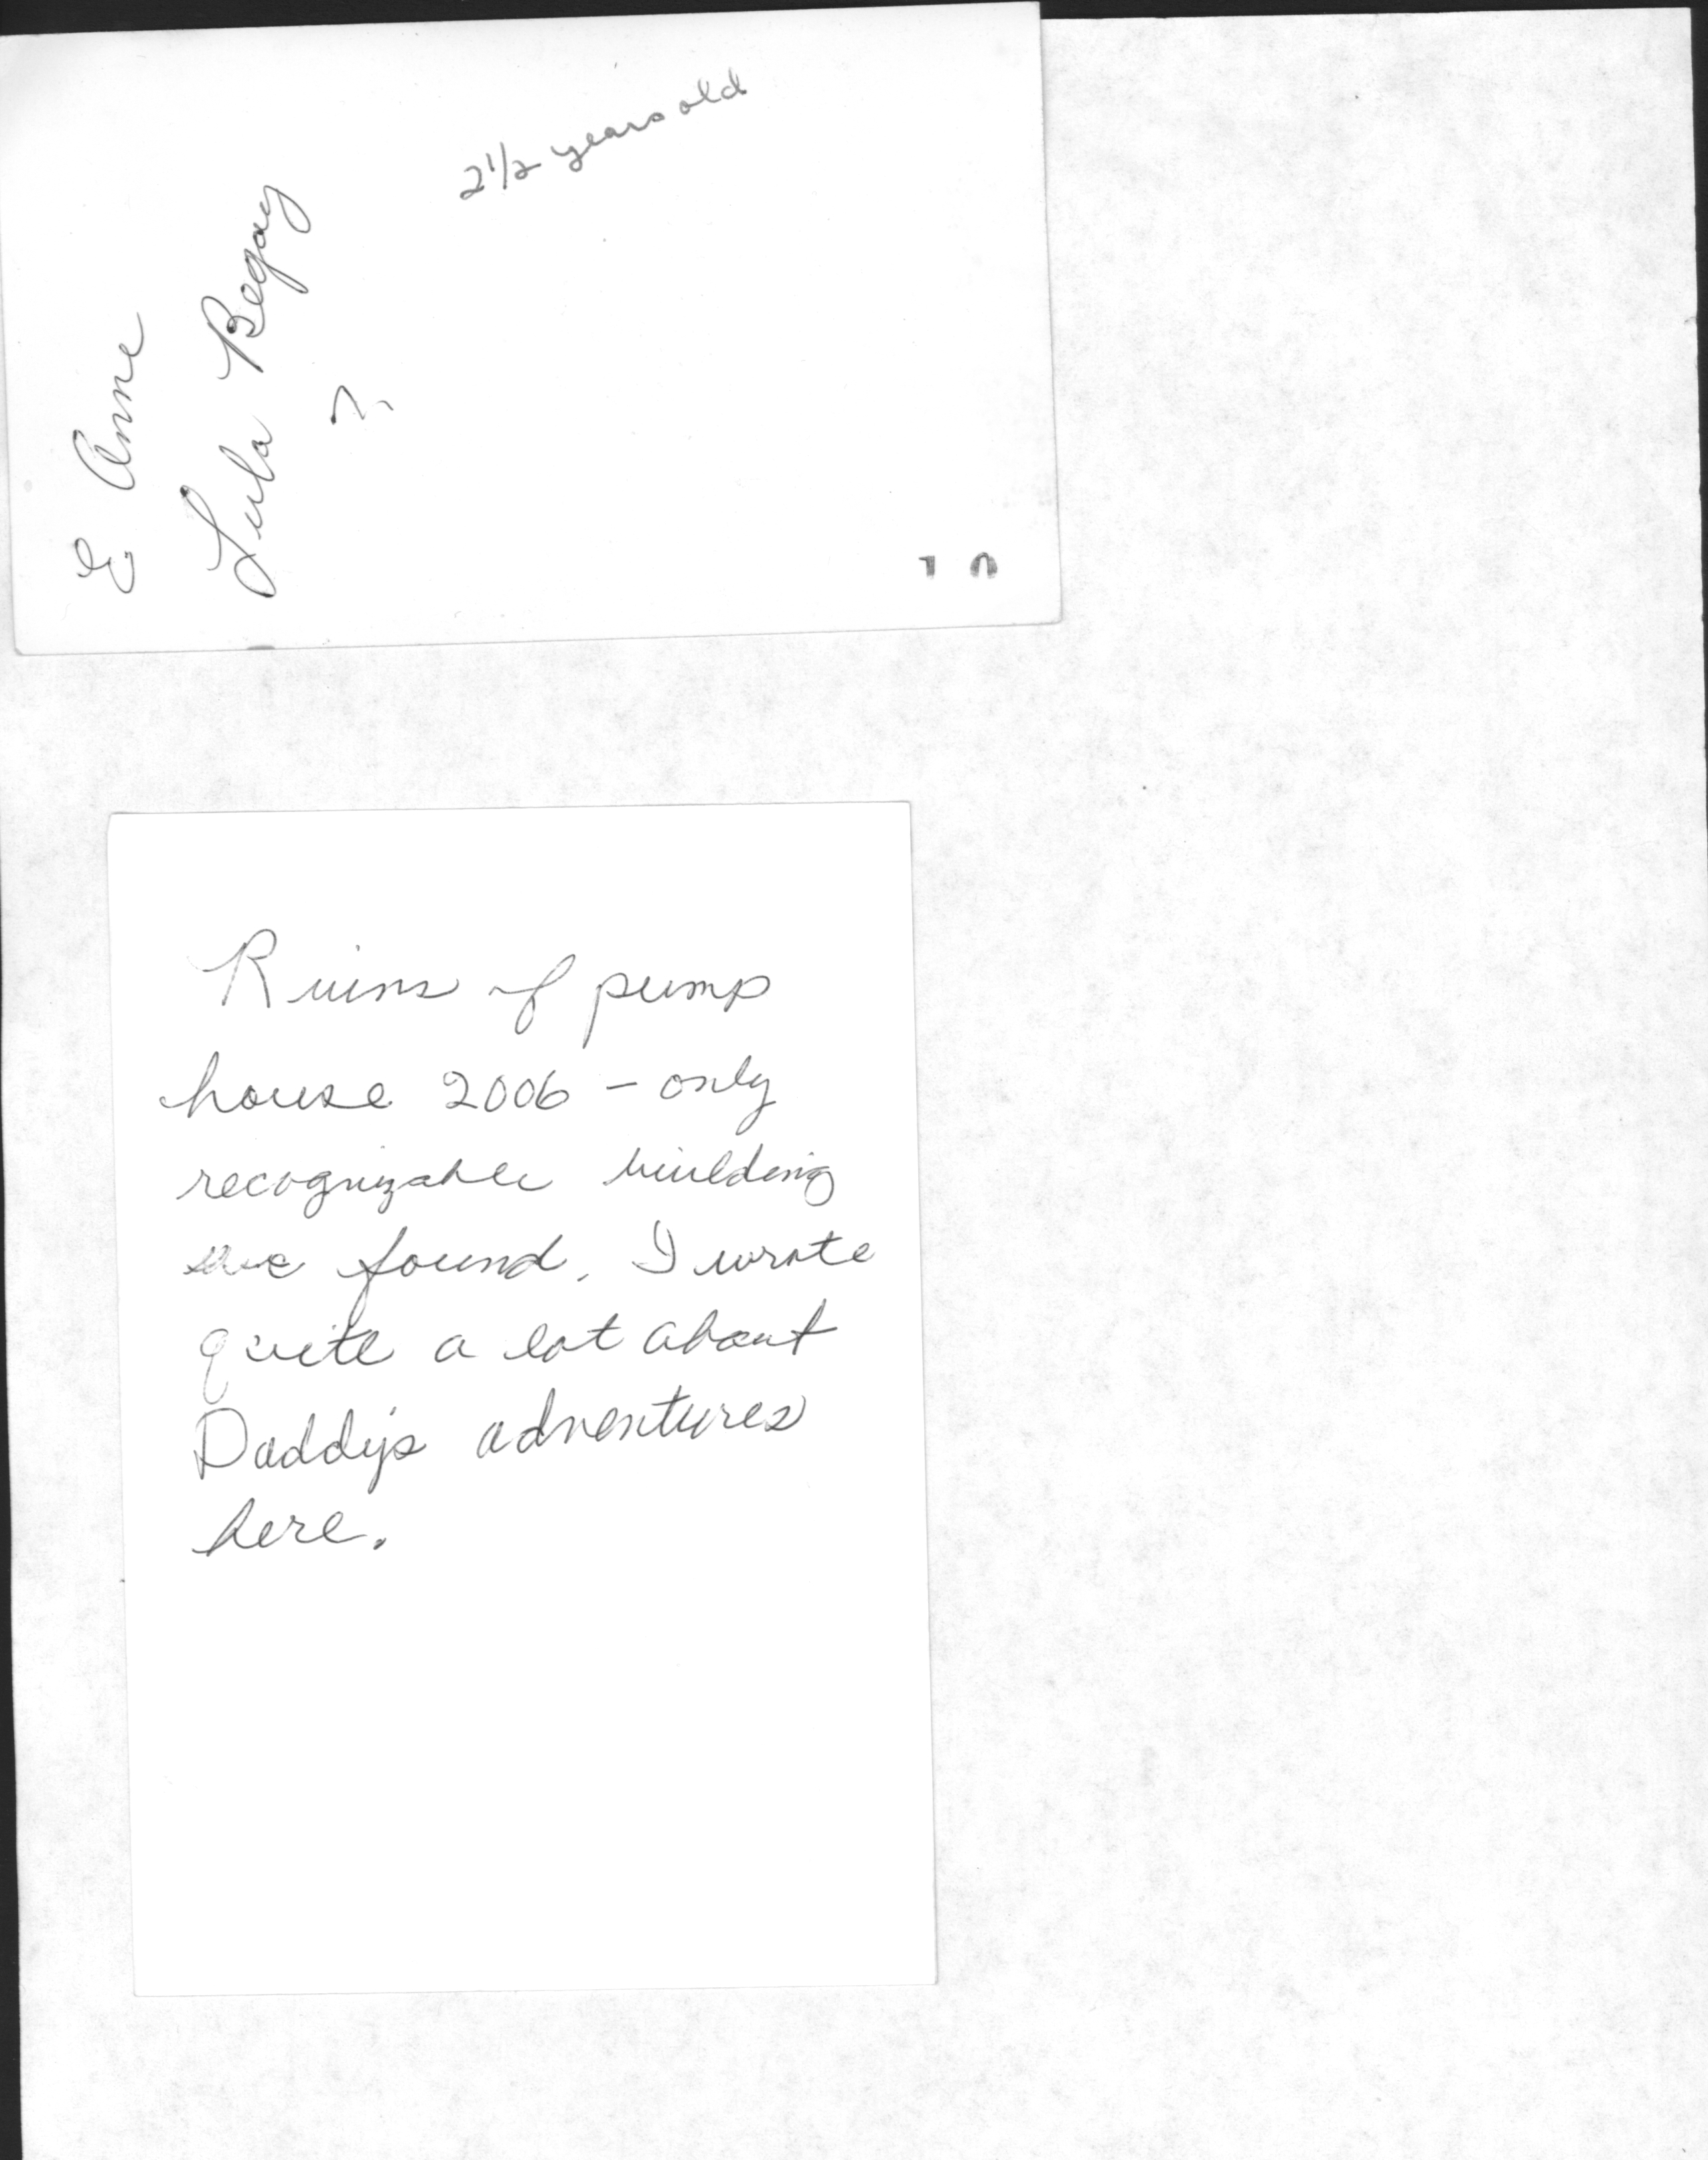 E Anne
Lula Begay
?
2 1/2 years old
10
Ruins of pump
house 2006 - only
recognizable building
we found. I wrote
quite a lot about
Daddy's adventures
here.